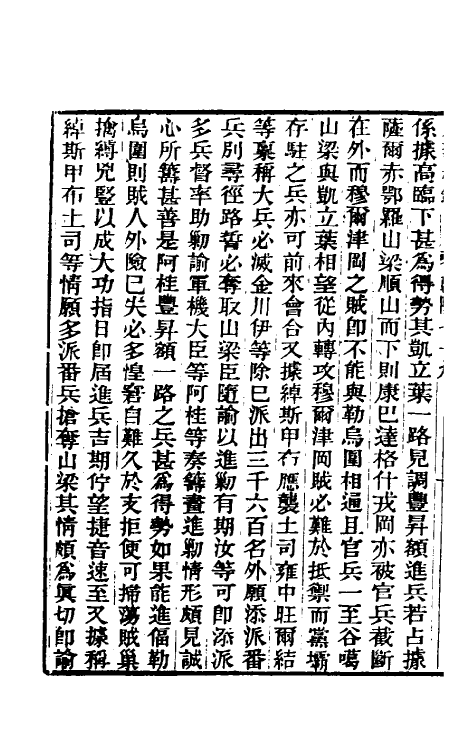 係據高臨下甚爲得勢其凱立葉一路見調豐昇額進兵若占據
薩爾赤鄂羅山梁順山而下則康巴達格什戎岡亦被官兵截斷
在外而穆爾津岡之賊卽不能與勒烏圍相通且官兵一至谷噶
山梁與凱立葉相望從內轉攻穆爾津岡賊必難於抵禦而黨壩
存駐之兵亦可前來會合又據綽斯甲布應襲土司雍中旺爾結
等稟稱大兵必滅金川伊等除已派出三千六百名外願添派番
兵別尋徑路誓必奪取山梁臣隨諭以進勦有期汝等可卽添派
多兵督率助勦諭軍機大臣等阿桂等奏籌畫進勦情形頗見誠
心所籌甚善是阿桂豐昇額一路之兵甚爲得勢如果能進偪勒
烏圍則賊人外險已失必多惶窘自難久於支拒便可掃蕩賊巢
擒縛兇豎以成大功指日卽屆進兵吉期佇望捷音速至又據稱
綽斯甲布土司等情願多派番兵搶奪山梁其情頗爲眞切卽諭